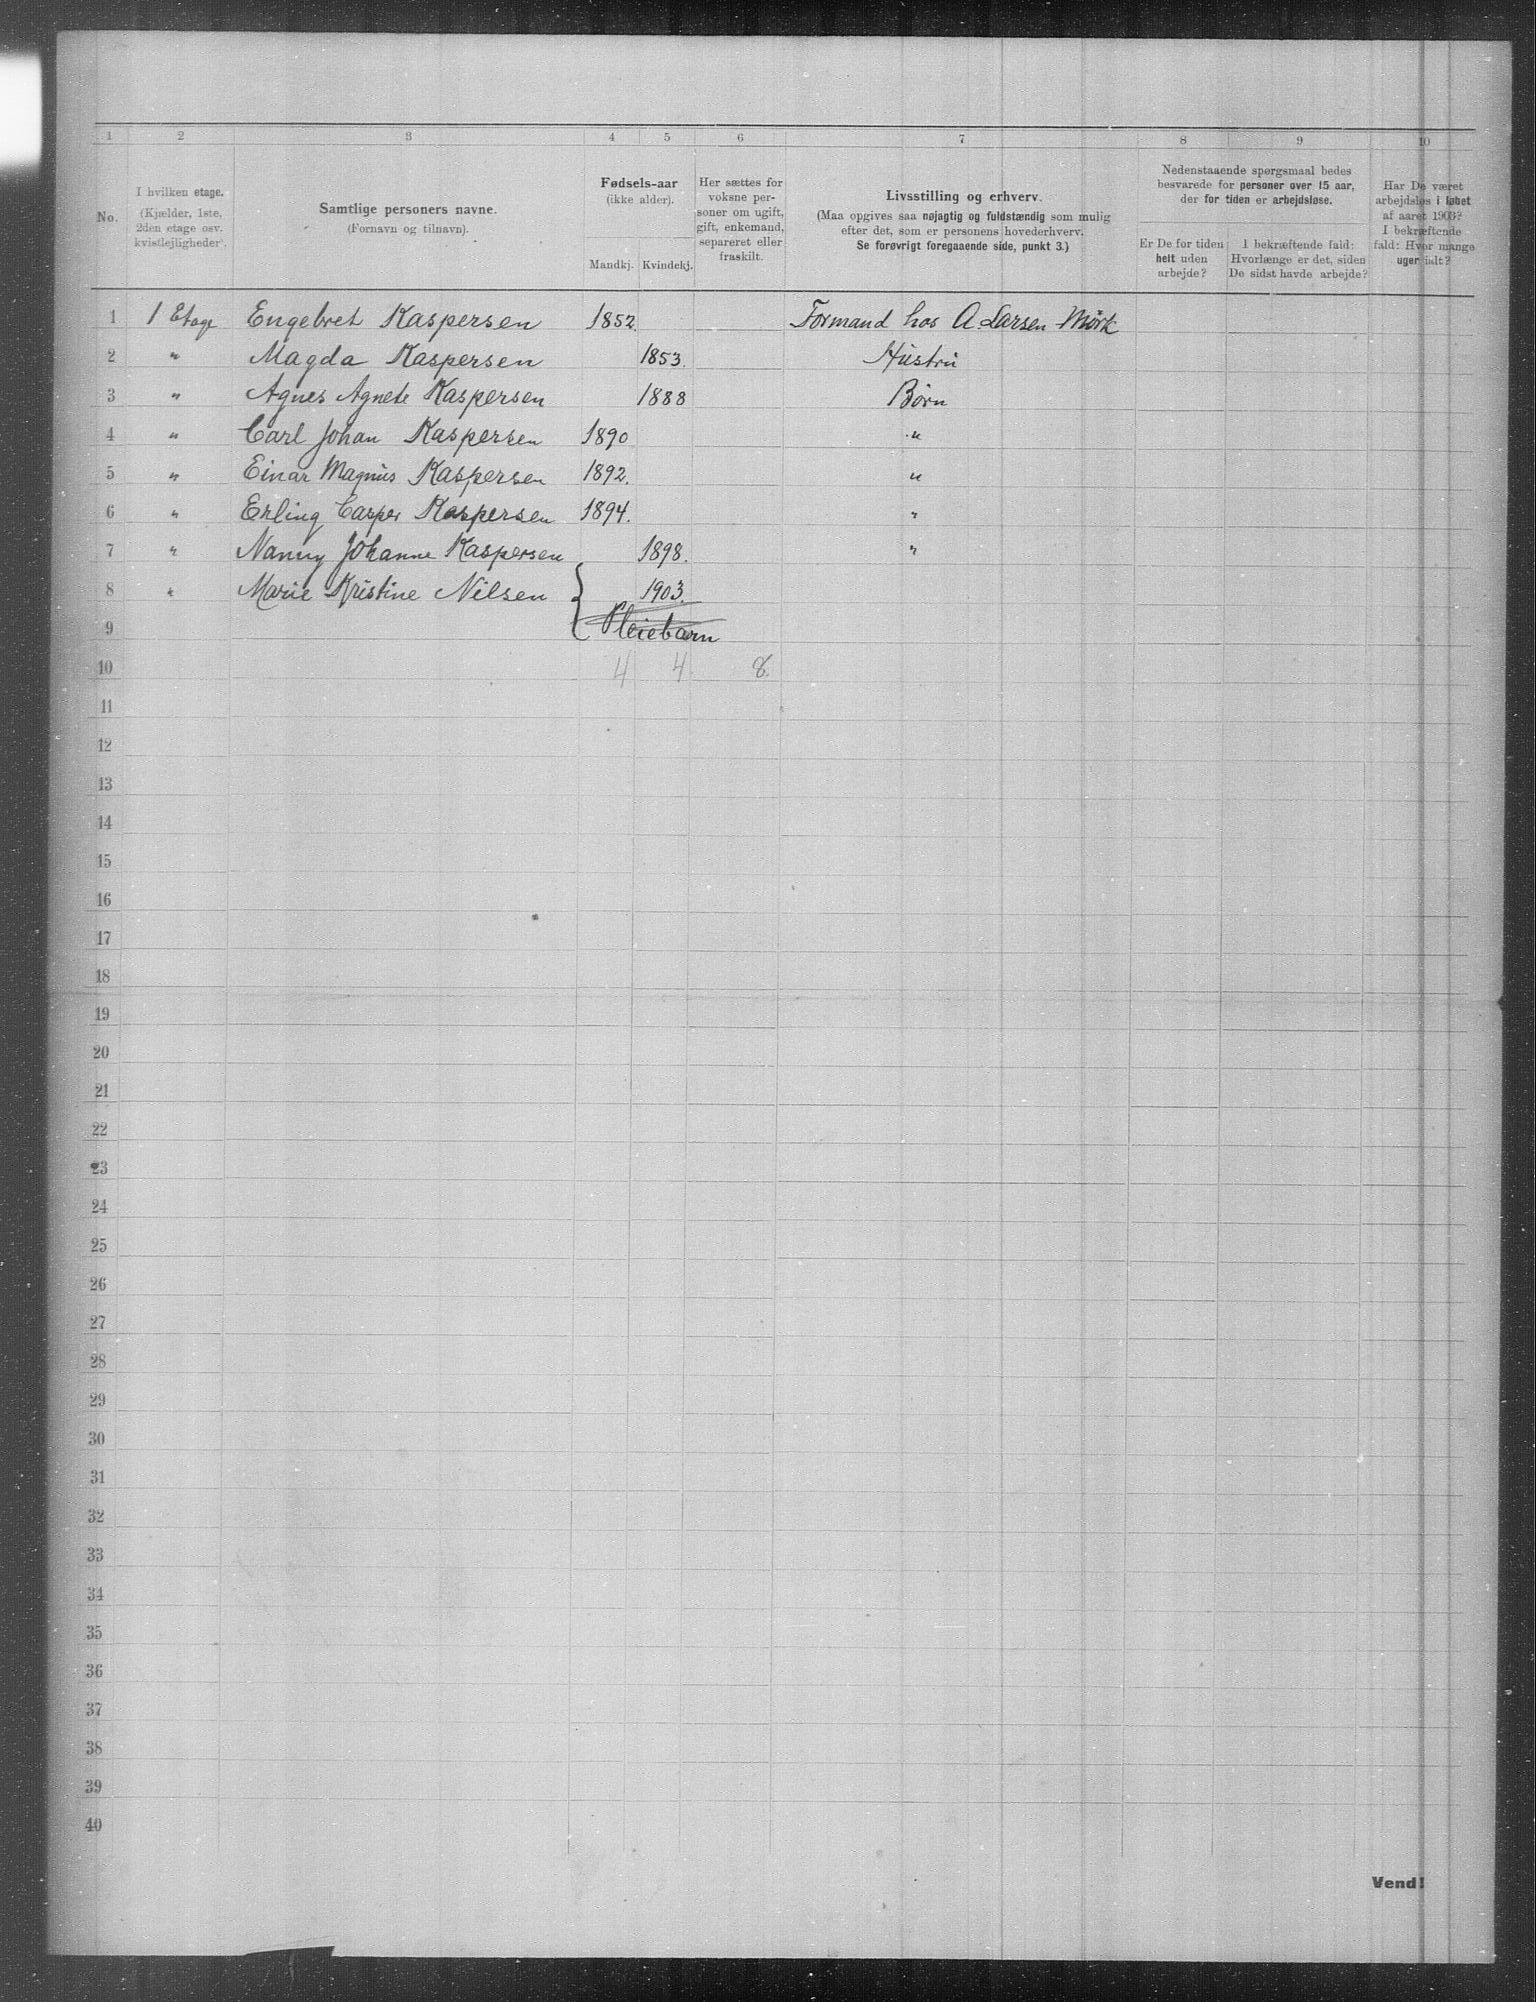 1 2 3 4 5 6 7 8 9 10
No.
I hvilken etage.
(Kjælder, 1ste,
2den etage osv.
kvistlejligheder).
Samtlige personers navne.
(Fornavn og tilnavn).
Fødsels-aar
(ikke alder).
Mandkj. Kvindekj.
Her sættes for
voksne per-
soner om ugift,
gift, enkemand,
separeret eller
fraskilt.
Livsstilling og erhverv.
(Maa opgives saa nøjagtig og fuldstændig som mulig
efter det, som er personens hovederhverv.
Se forøvrigt foregaaende side, punkt 3.)
Nedenstaaende spørgsmaal bedes
besvarede for personer over 15 aar,
der for tiden er arbejdsløse.
Er De for tiden
helt uden
arbejde?
I bekræftende fald:
Hvorlænge er det, siden
De sidst havde arbejde?
Har De været
arbejdsløs i løbet
af aaret 1903?
I bekræftende
fald: Hvor mange
uger ialt?
1 1 Etage Engebret Kaspersen 1852. Formand hos A. Larsen Mörk
2 " Magda Kaspersen 1853. Hustru
3 " Agnes Agnete Kaspersen 1888 Børn
4 " Carl Johan Kaspersen 1890 "
5 " Einar Magnus Kaspersen 1892. "
6 " Erling Casper Kaspersen 1894. "
7 " Nanny Johanne Kaspersen 1898. "
8 " Marie Kristine Nilsen 1903.
9 Pleiebarn
10 4 4 8.
11
12
13
14
15
16
17
18
19
20
21
22
23
24
25
26
27
28
29
30
31
32
33
34
35
36
37
38
39
40
Vend!